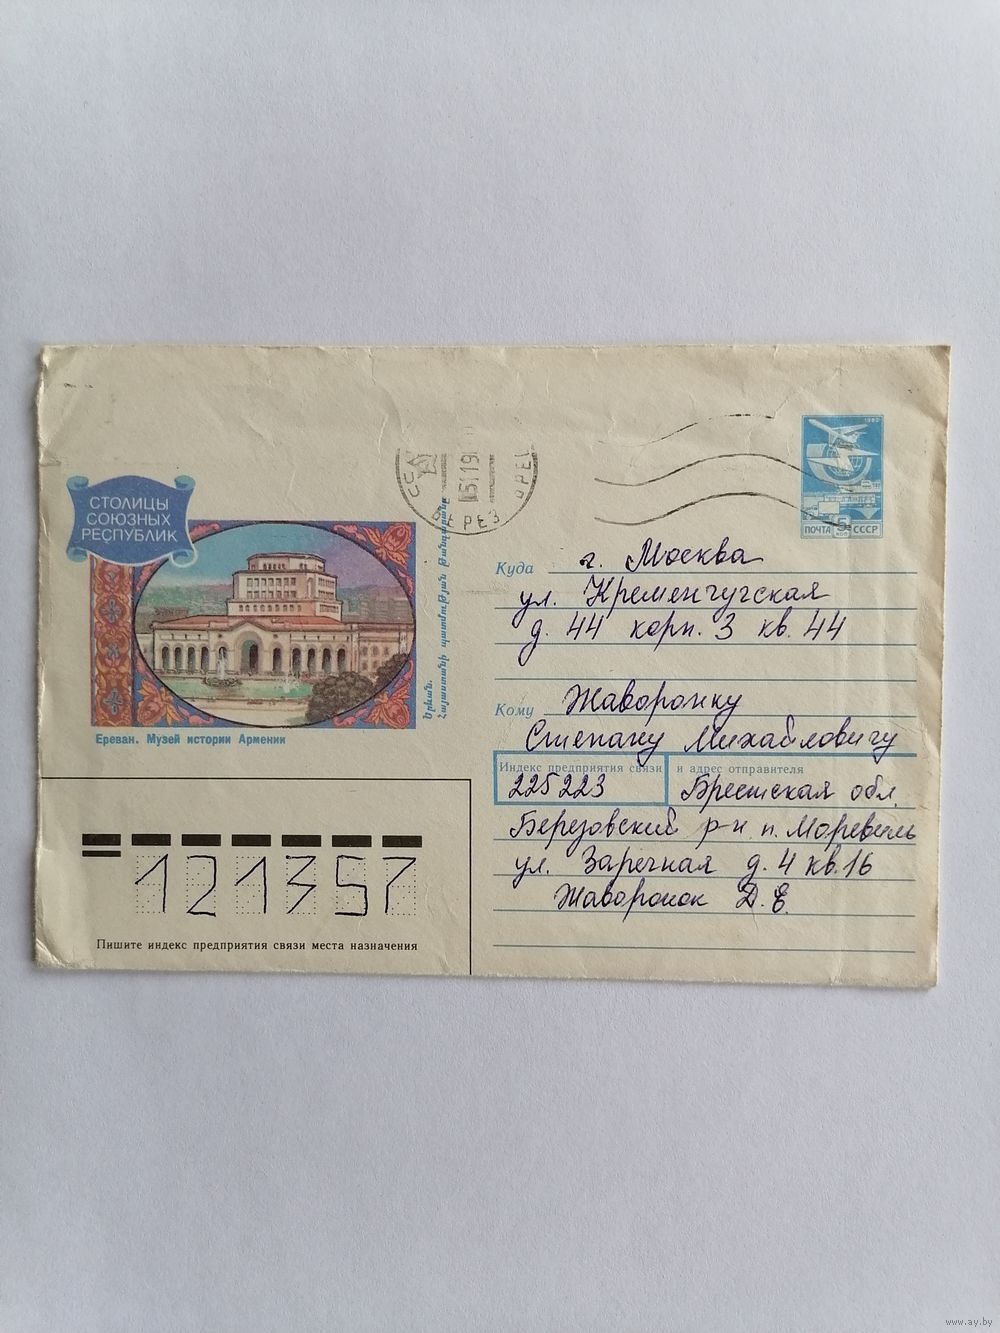 СТОЛИЦЫ
СОЮЗНЫХ
РЕСПУБЛИК
Ереван. Музей истории Армении
Երևան.
Հայաստանի պատմության թանգարան
БЕРЕЗ
1982
ПОЧТА 5 КОП СССР
Куда г. Москва
ул. Кременчугская
д. 44 корп. 3 кв. 44
Кому Жаворонку
Степану Михайловичу
Индекс предприятия связи и адрес отправителя
225223 Брестская обл.
Березовский р-н п. Моревиль
ул. Заречная д. 4 кв. 16
Жаворонок Д. Е.
121357
Пишите индекс предприятия связи места назначения
www.ay.by